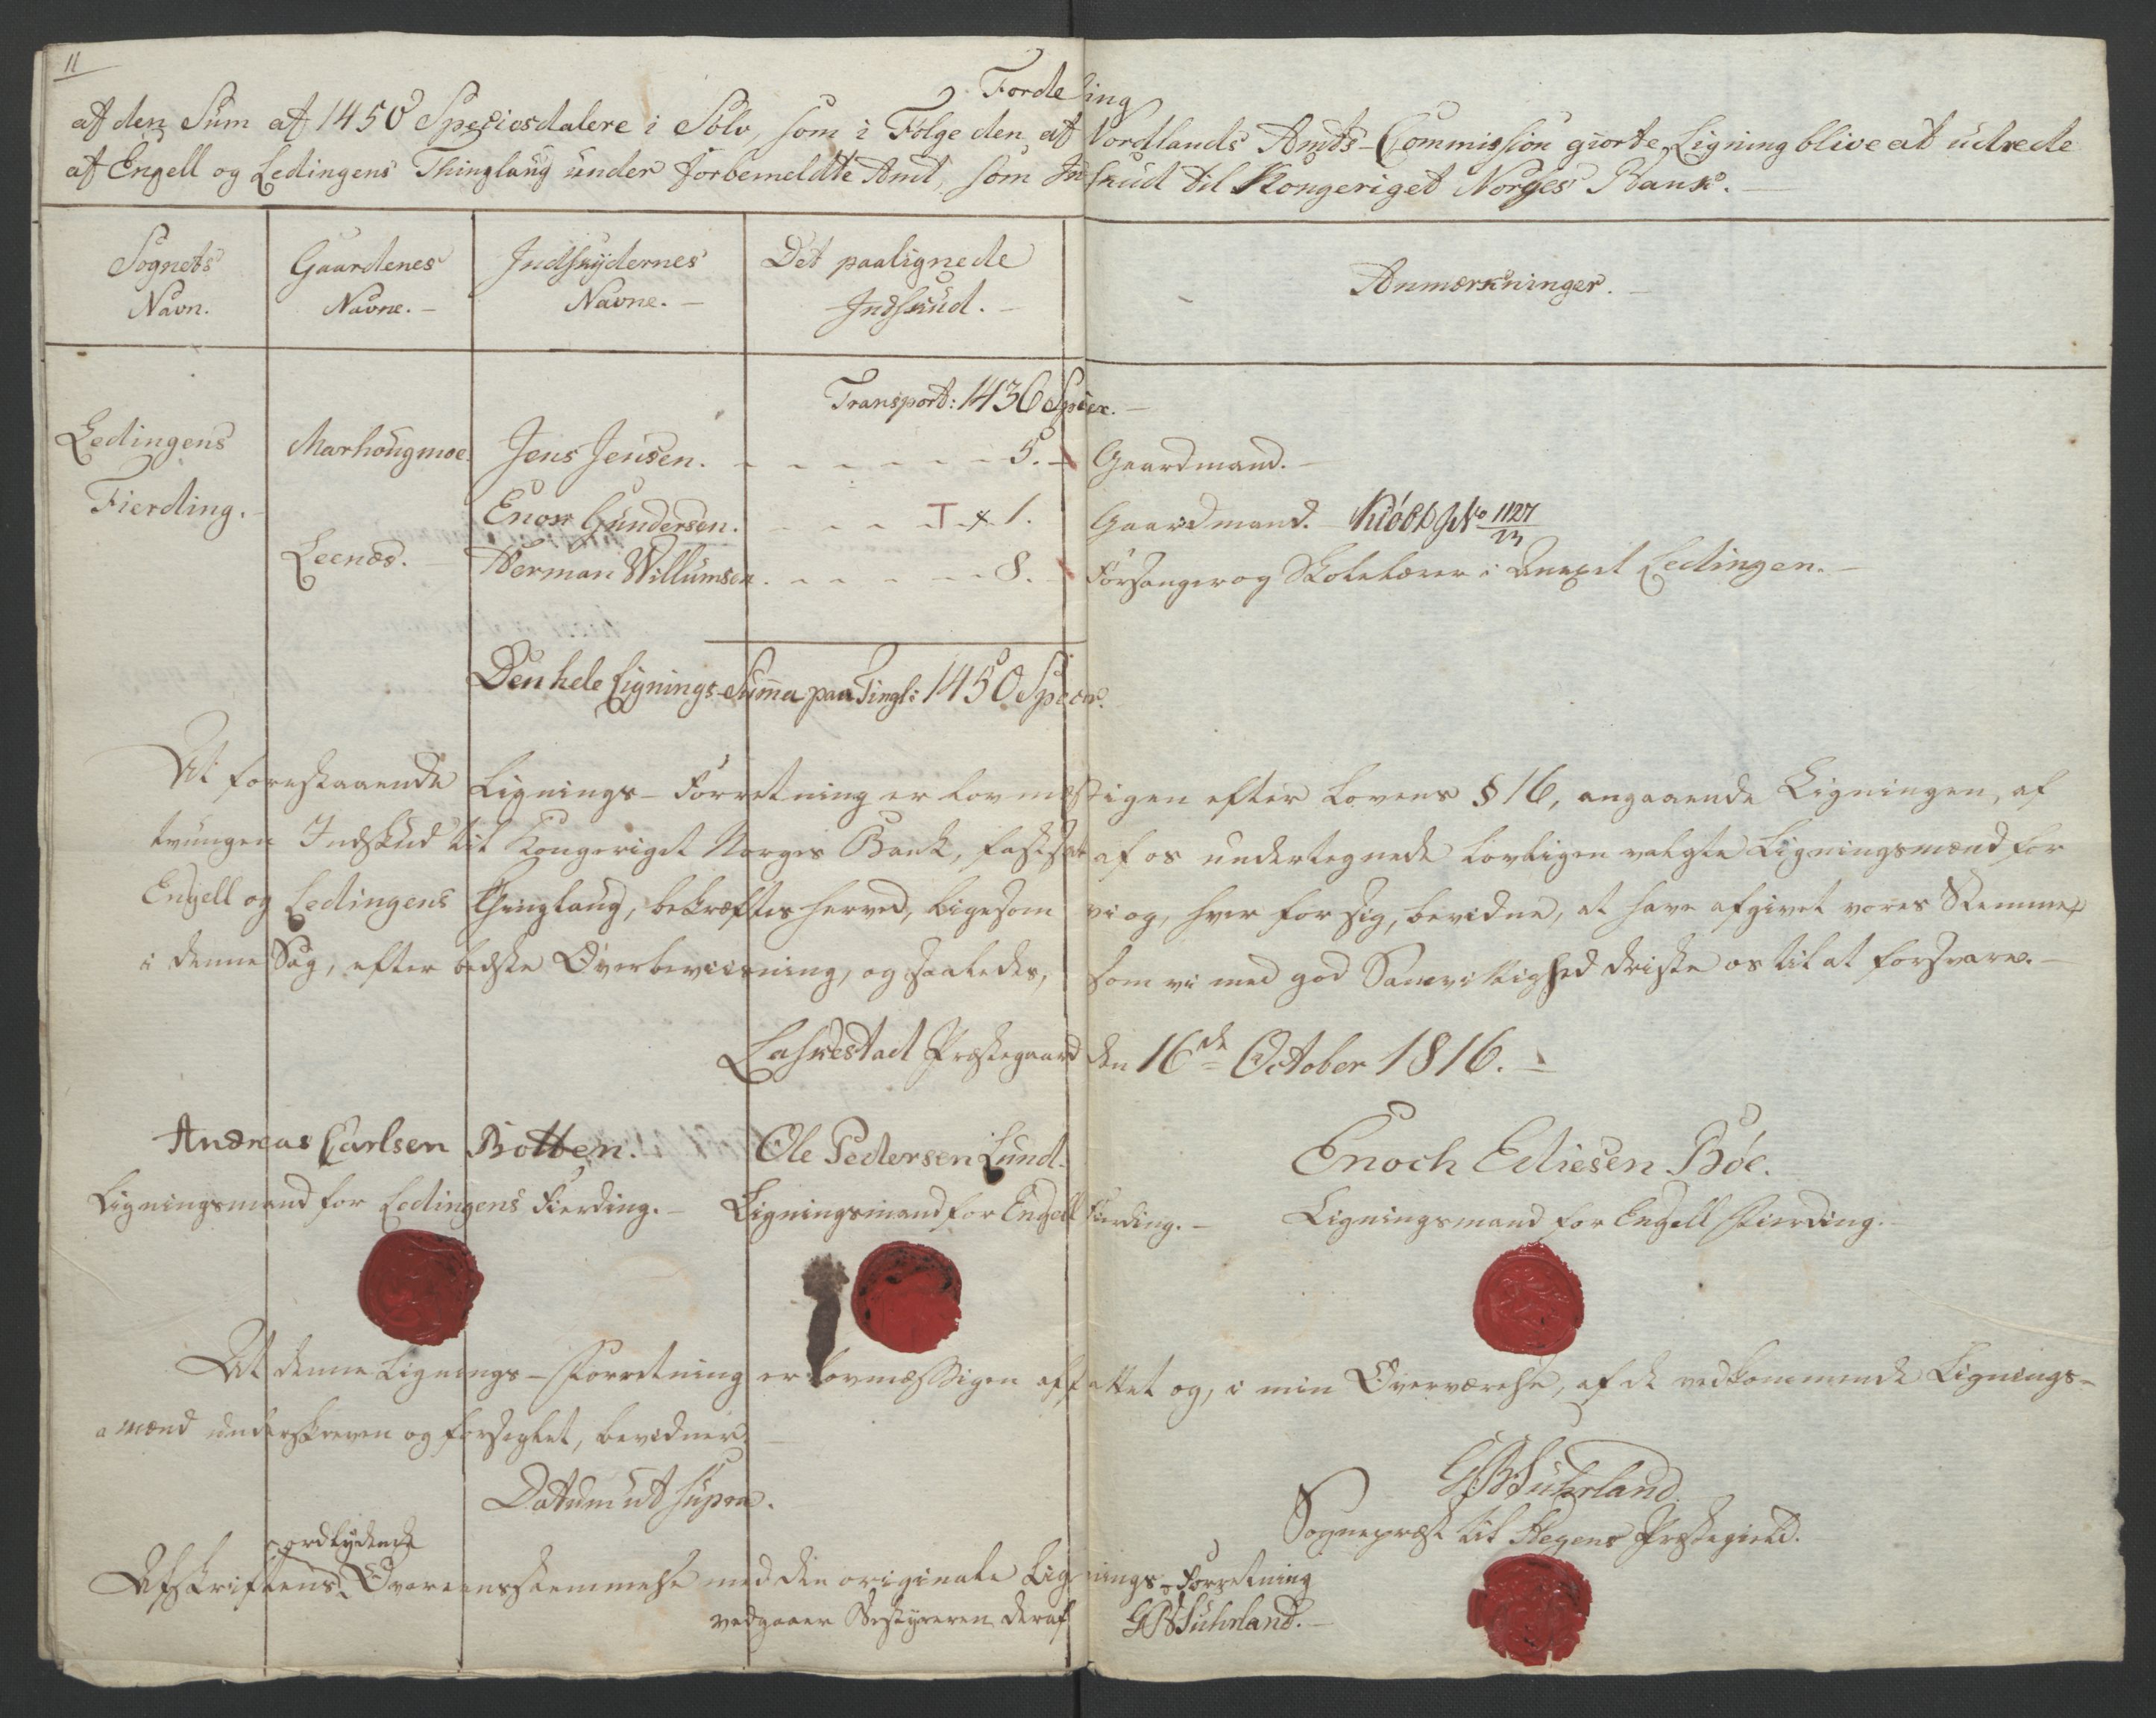 11
Fordeling
af den Sum af 1450 Speciesdalere i Sølv, som i Følge den, af Nordlands Amts-Commission giorte Ligning blive at udrede
af Engell og Ledingens Thinglaug under forbemeldte Amt, som Indskud til Kongeriget Norges Bank. —
Sognets Navn.
Gaardenes Navne. —
Indskydernes Navne. —
Det paalignede Indskud. —
Anmærkninger. —
Transport: 1436 Specier. —
Ledingens Marhougmoe. Jens Jensen. - - - - - - 5. — Gaardmand. —
Fierding. — Enok Gundersen. - - - - T x 1. Gaardmand. Kiøbt No 1127
Leenæs. Herman Willumsen. - - - - - 8. Forsanger og Skolelærer i Annexet Ledingen. —
Den hele Lignings-Summa paa Tingl: 1450 Specier.
At forestaaende Lignings-Forretning er lovmæssigen efter Lovens § 16, angaaende Ligningen, af
tvungen Indskud til Kongeriget Norges Bank, fastsat af os undertegnede lovligen valgte Ligningsmænd for
Engell og Ledingens Thinglaug, bekræftes herved, ligesom vi og, hver for sig, bevidne, at have afgivet vores Stemmer
i denne Sag, efter bedste Overbeviisning, og saaledes, som vi med god Samvittighed driste os til at forsvare. —
Laskestad Præstegaard den 16de October 1816. —
Andreas Carlsen Botten. Ole Pedersen Lund. Enoch Ediesen Bøe.
Ligningsmand for Ledingens Fierding. — Ligningsmand for Engell Fierding. — Ligningsmand for Engell Fierding. —
At denne Lignings-Forretning er lovmæssigen affattet og, i min Overværelse, af de vedkommende Lignings-
mænd underskreven og forseglet, bevidner.
Datum ut supra.
GBSuhrland.
Sognepræst til Stegens Præstegield.
ordlydende
Afskriftens Overeensstemmelse med den originale Lignings-Forretning
vedgaaer Bestyreren deraf GBSuhrland. —